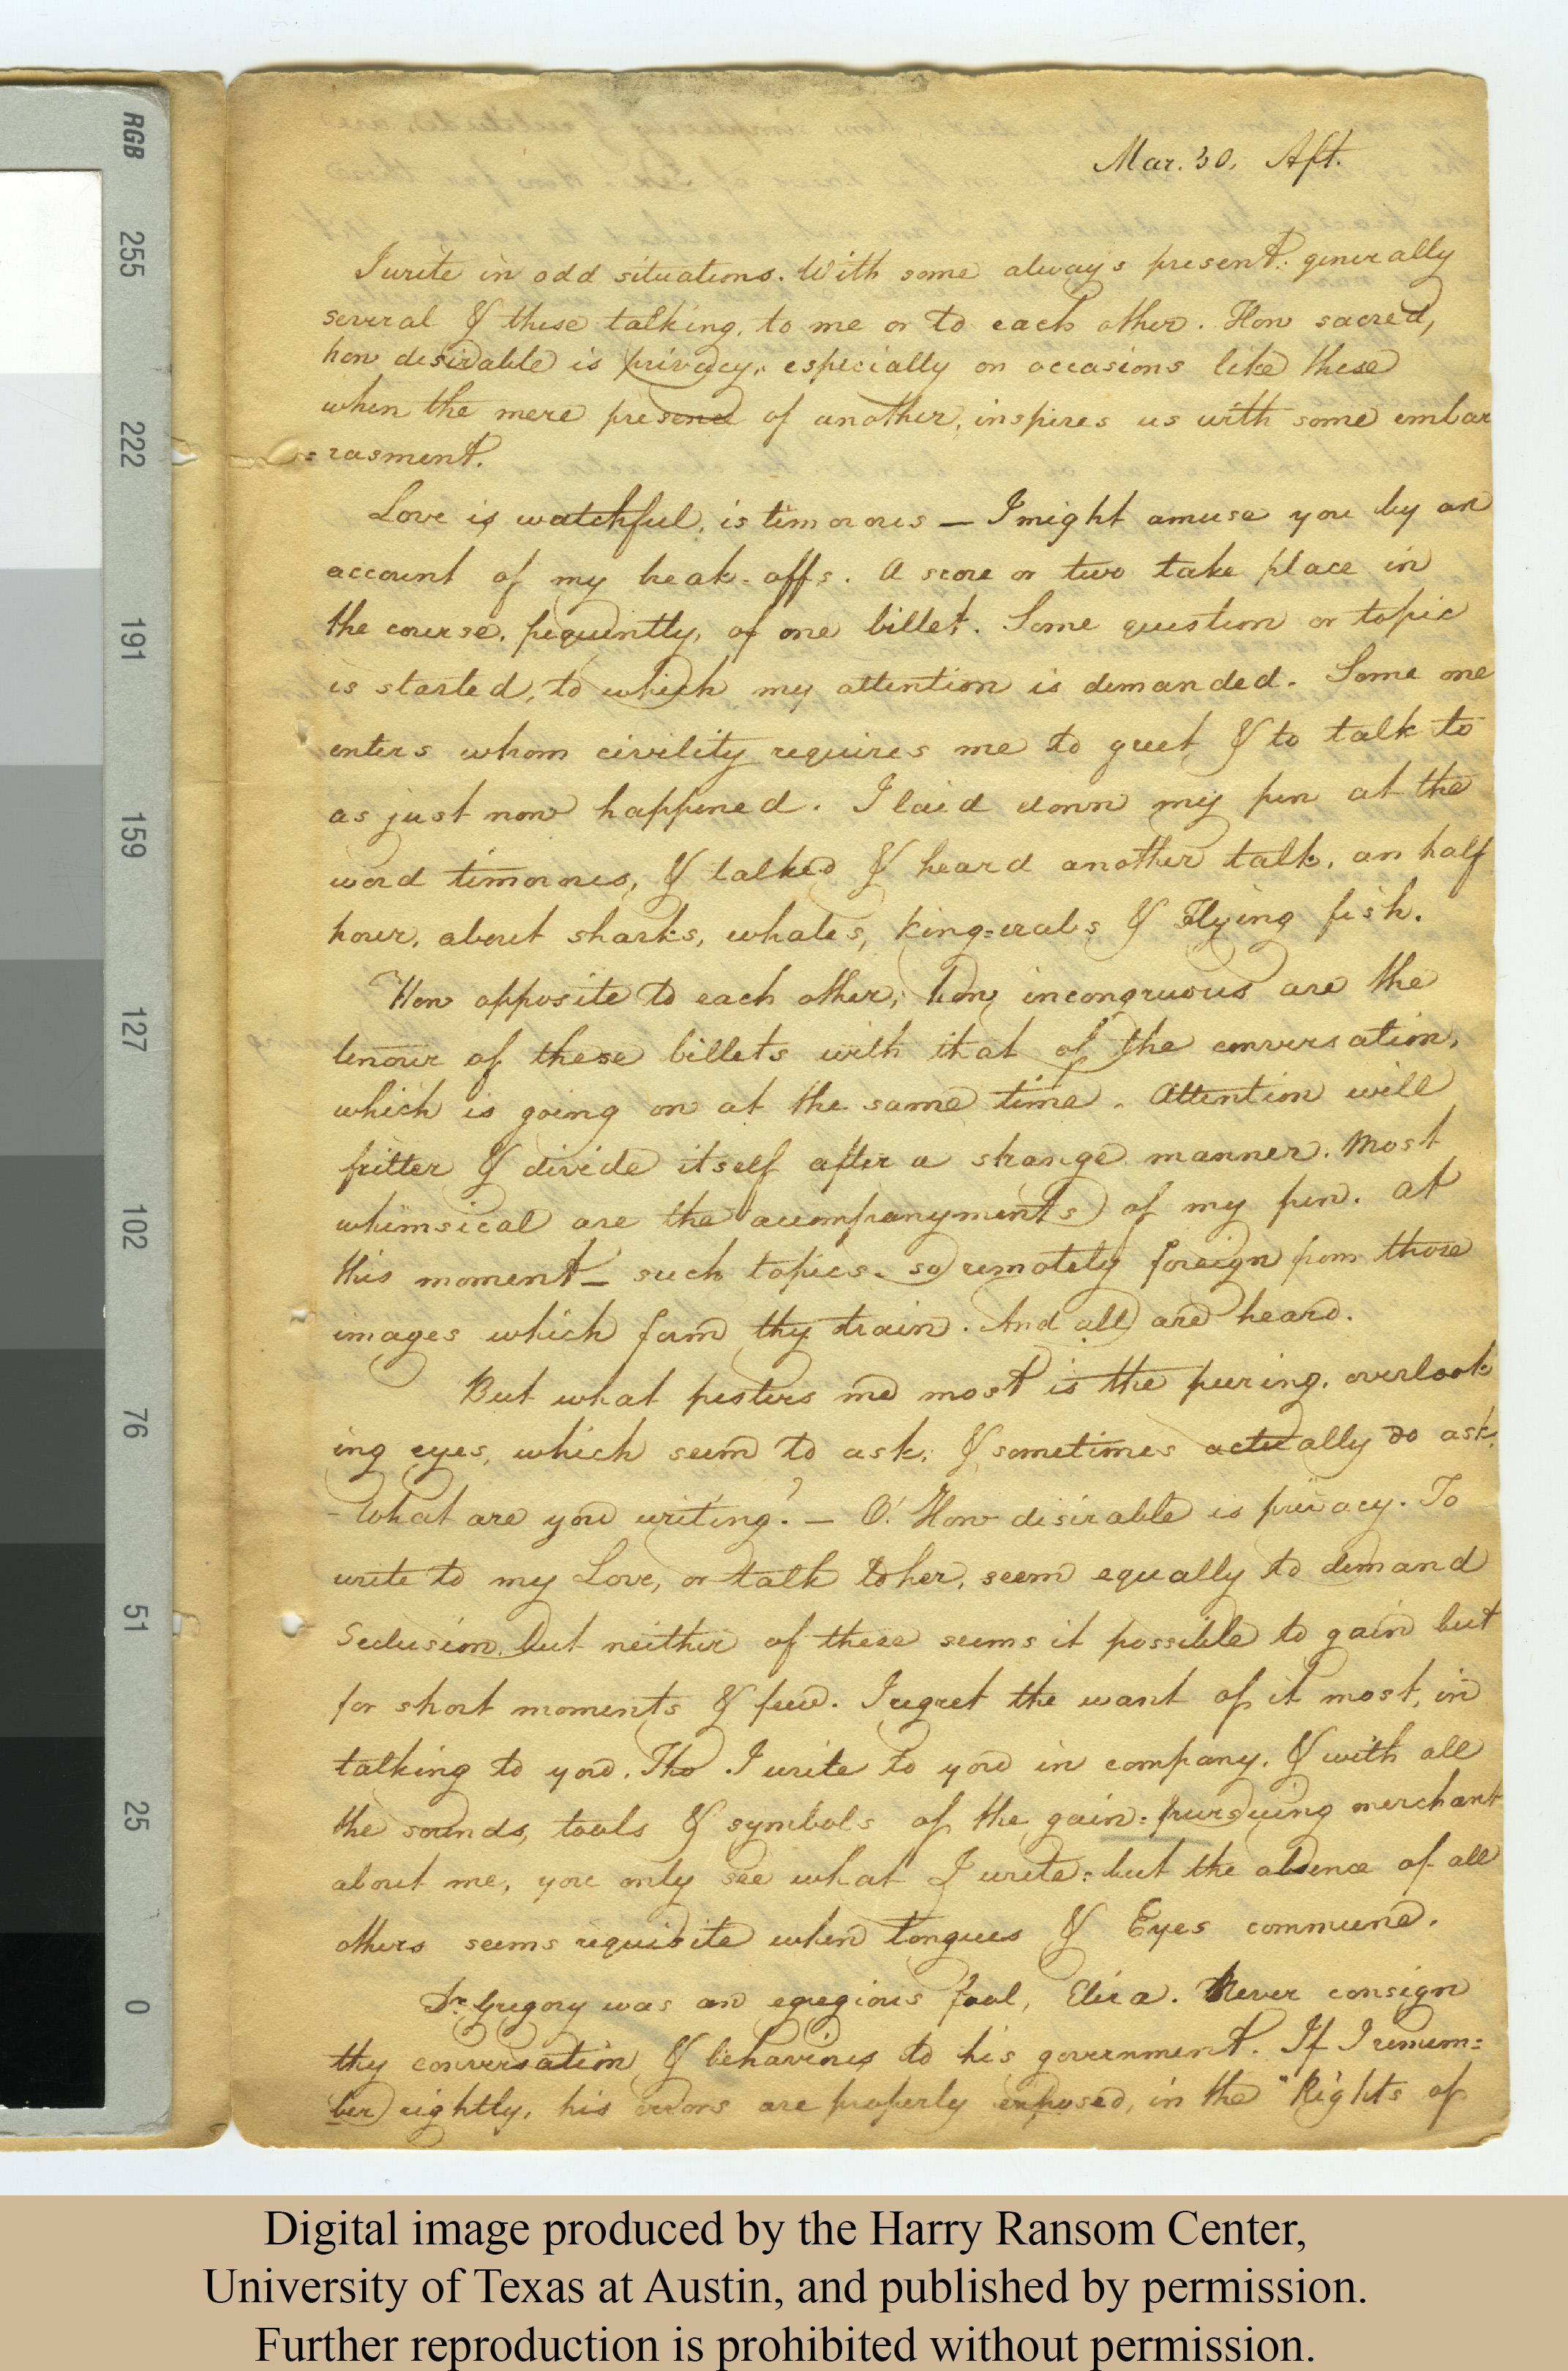 RGB
255
222
191
159
127
102
76
51
25
0
Mar. 30. Aft.
I write in odd situations. With some always present: generally
several & these talking, to me or to each other. How sacred,
how desirable is privacy, especially on occasions like these
when the mere presence of another, inspires us with some embar
=rasment.
Love is watchful, is timorous — I might amuse you by an
account of my break-offs. A score or two take place in
the course, frequently, of one billet. Some question or topic
is started, to which my attention is demanded. Some one
enters whom civility requires me to greet & to talk to
as just now happened. I laid down my pen at the
word timorous, & talked & heard another talk, an half
hour, about sharks, whales, king=crabs & Flying fish.
How opposite to each other, how incongruous are the
tenour of these billets with that of the conversation,
which is going on at the same time. Attention will
fritter & divide itself after a strange manner. Most
whimsical are the accompanyments of my pen. At
this moment — such topics. so remotely foreign from those
images which form thy train. And all are heard.
But what pesters me most is the peering, overlook
ing eyes, which seem to ask, & sometimes actually do ask.
- What are you writing? — O! How desirable is privacy. To
write to my Love, or talk to her, seem equally to demand
Seclusion, but neither of these seems it possible to gain but
for short moments & few. I regret the want of it most, in
talking to you. Tho I write to you in company, & with all
the sounds, tools & symbols of the gain=pursuing merchant
about me, you only see what I write: but the absence of all
others seems requisite when tongues & Eyes commune.
Dr. Gregory was an egregious fool, Eliza. Never consign
thy conversation & behaviours to his government. If I remem=
ber rightly, his errors are properly exposed, in the "Rights of
Digital image produced by the Harry Ransom Center,
University of Texas at Austin, and published by permission.
Further reproduction is prohibited without permission.